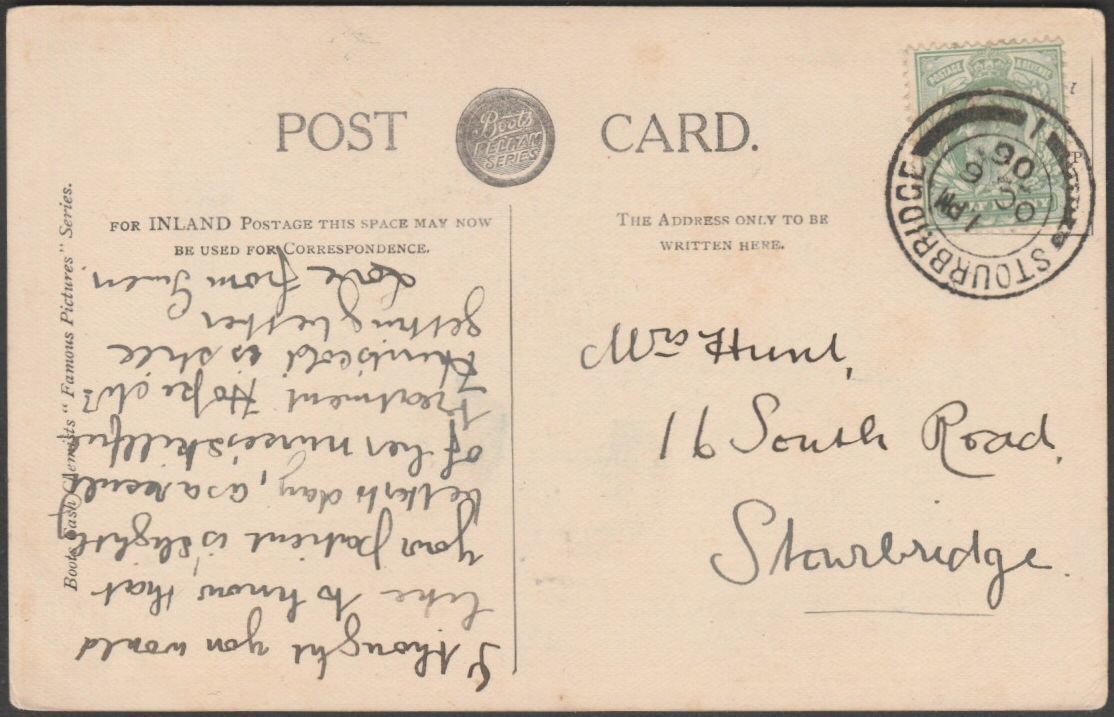 POST CARD.
Boots
PELHAM
SERIES
FOR INLAND POSTAGE THIS SPACE MAY NOW
BE USED FOR CORRESPONDENCE.
THE ADDRESS ONLY TO BE
WRITTEN HERE.
Boots Cash Chemists "Famous Pictures" Series.
I thought you would
like to know that
your patient is slightly
better to day, as a result
of her nurse's skilful
treatment Hope
cold is still
getting better
Love from Gwen
Mrs Hunt,
16 South Road,
Stourbridge.
POSTAGE & REVENUE
STOURBRIDGE
1 PM
OC
06